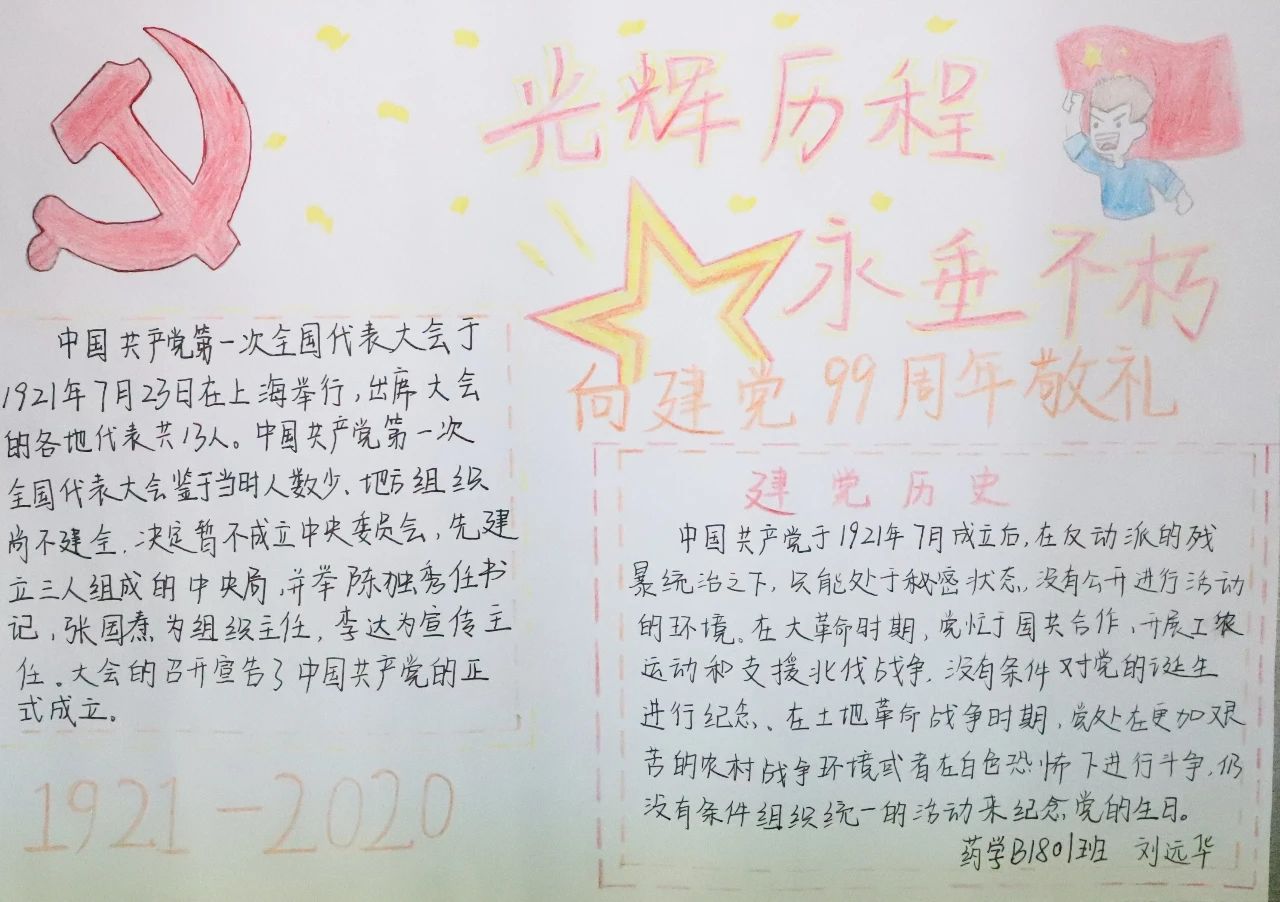 光辉历程
永垂不朽
向建党99周年敬礼
中国共产党第一次全国代表大会于
1921年7月23日在上海举行,出席大会
的各地代表共13人。中国共产党第一次
全国代表大会鉴于当时人数少、地方组织
尚不建全,决定暂不成立中央委员会,先建
立三人组成的中央局,并举陈独秀任书
记,张国焘为组织主任,李达为宣传主
任。大会的召开宣告了中国共产党的正
式成立。
1921-2020
建党历史
中国共产党于1921年7月成立后,在反动派的残
暴统治之下,只能处于秘密状态,没有公开进行活动
的环境。在大革命时期,党忙于国共合作、开展工农
运动和支援北伐战争,没有条件对党的诞生
进行纪念、在土地革命战争时期,党处在更加艰
苦的农村战争环境或者在白色恐怖下进行斗争,仍
没有条件组织统一的活动来纪念党的生日。
药学B1801班 刘远华